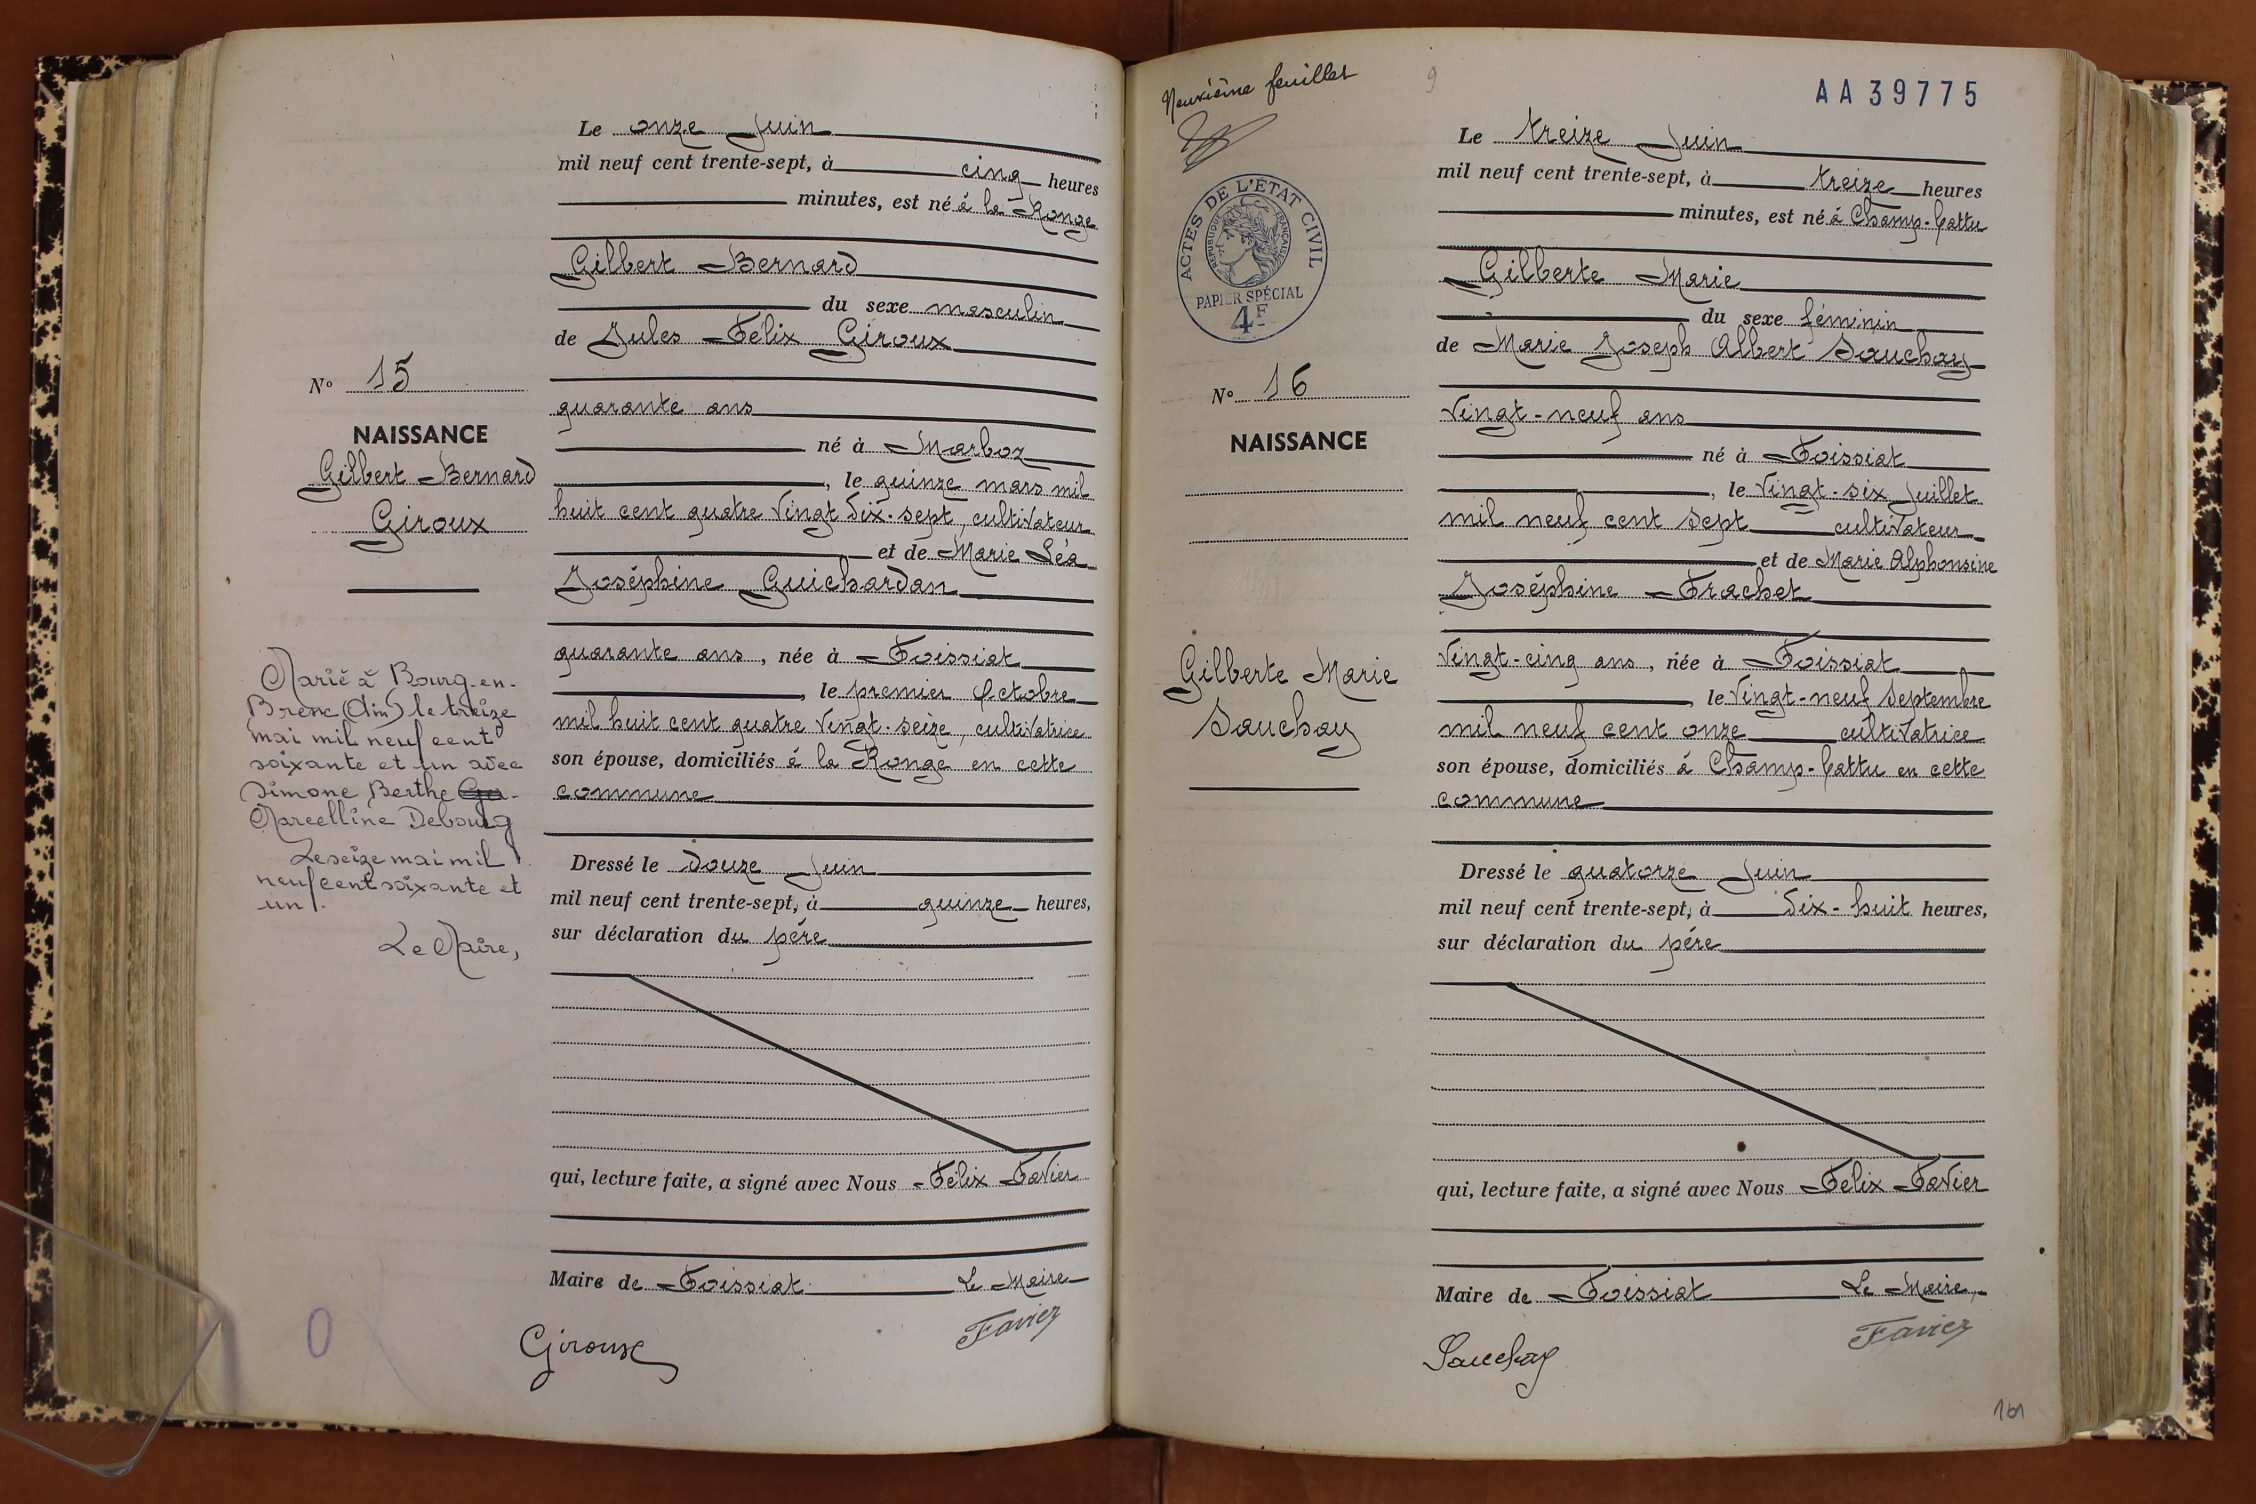 Le onze Juin
mil neuf cent trente-sept, à cinq heures
minutes, est né à la Ronge
Gilbert Bernard
du sexe masculin
de Jules Félix Giroux
N° 15
quarante ans
NAISSANCE
né à Marboz
Gilbert Bernard
, le quinze mars mil
Giroux
huit cent quatre Vingt Dix-sept, cultivateur
et de Marie Léa
Joséphine Guichardan
quarante ans, née à Foissiat
, le premier Octobre
mil huit cent quatre Vingt-seize, cultivatrice
son épouse, domiciliés à la Ronge en cette
commune
Marié à Bourg-en-
Bresse (Ain) le treize
mai mil neuf cent
soixante et un avec
Simone Berthe
Marcelline Debourg
Le seize mai mil
neuf cent soixante et
un.
Le Maire,
Dressé le douze Juin
mil neuf cent trente-sept, à quinze heures,
sur déclaration du père
qui, lecture faite, a signé avec Nous Félix Favier
Maire de Foissiat Le Maire
Giroux
Favier
O
Neuvième feuillet
9
AA39775
ACTES DE L'ÉTAT CIVIL
RÉPUBLIQUE FRANÇAISE
PAPIER SPÉCIAL
4F
Le treize Juin
mil neuf cent trente-sept, à treize heures
minutes, est né à Champ-battu
Gilberte Marie
du sexe féminin
de Marie Joseph Albert Sauchay
N° 16
Vingt-neuf ans
NAISSANCE
né à Foissiat
, le Vingt-six Juillet
mil neuf cent sept cultivateur
et de Marie Alphonsine
Joséphine Frachet
Vingt-cinq ans, née à Foissiat
Gilberte Marie
Sauchay
, le Vingt-neuf Septembre
mil neuf cent onze cultivatrice
son épouse, domiciliés à Champ-battu en cette
commune
Dressé le quatorze Juin
mil neuf cent trente-sept, à Dix-huit heures,
sur déclaration du père
qui, lecture faite, a signé avec Nous Félix Favier
Maire de Foissiat Le Maire,
Sauchay
Favier
161